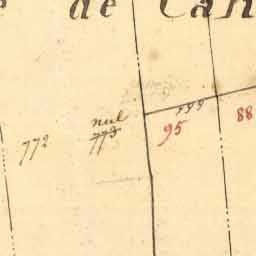 de Can
nul
772 773 95 88